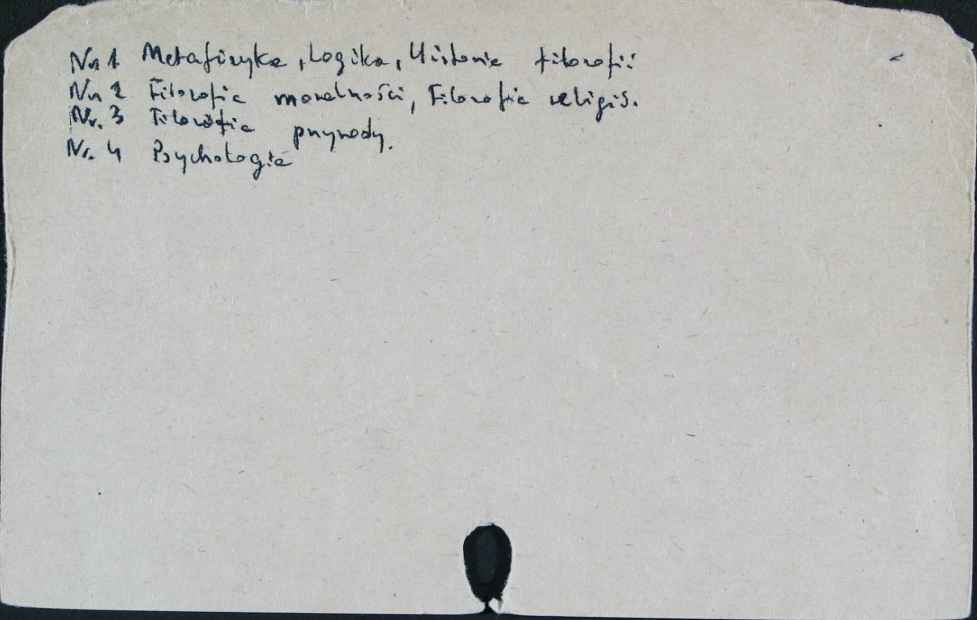 Nr 1 Metafizyka, Logika, Historia filozofii
Nr 2 Filozofia moralności, Filozofia religii.
Nr. 3 Filozofia przyrody.
Nr. 4 Psychologia